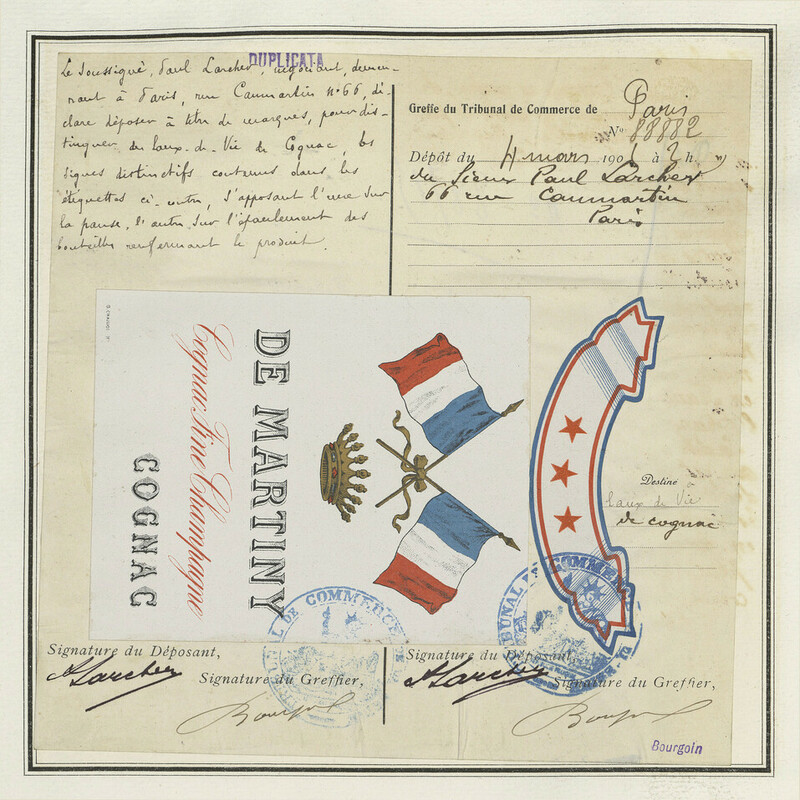 DUPLICATA
Le soussigné, Paul Larcher, négociant, demeu-
rant à Paris, rue Caumartin n° 66, dé-
clare déposer à titre de marques, pour dis-
tinguer des Eaux-de-Vie de Cognac, les
signes distinctifs contenus dans les
étiquettes ci-contre, s'apposant l'une sur
la panse, l'autre sur l'épaulement des
bouteilles renfermant le produit.
Greffe du Tribunal de Commerce de Paris
N° 88882
Dépôt du 4 mars 190 à 2 h.
du Sieur Paul Larcher
66 rue Caumartin
Paris
DE MARTINY
Cognac Fine Champagne
COGNAC
Destiné à
Eaux de Vie
de cognac
TRIBUNAL DE COMMERCE
TRIBUNAL DE COMMERCE
Signature du Déposant,
Larcher
Signature du Greffier,
Signature du Déposant,
Larcher
Signature du Greffier,
Bourgoin